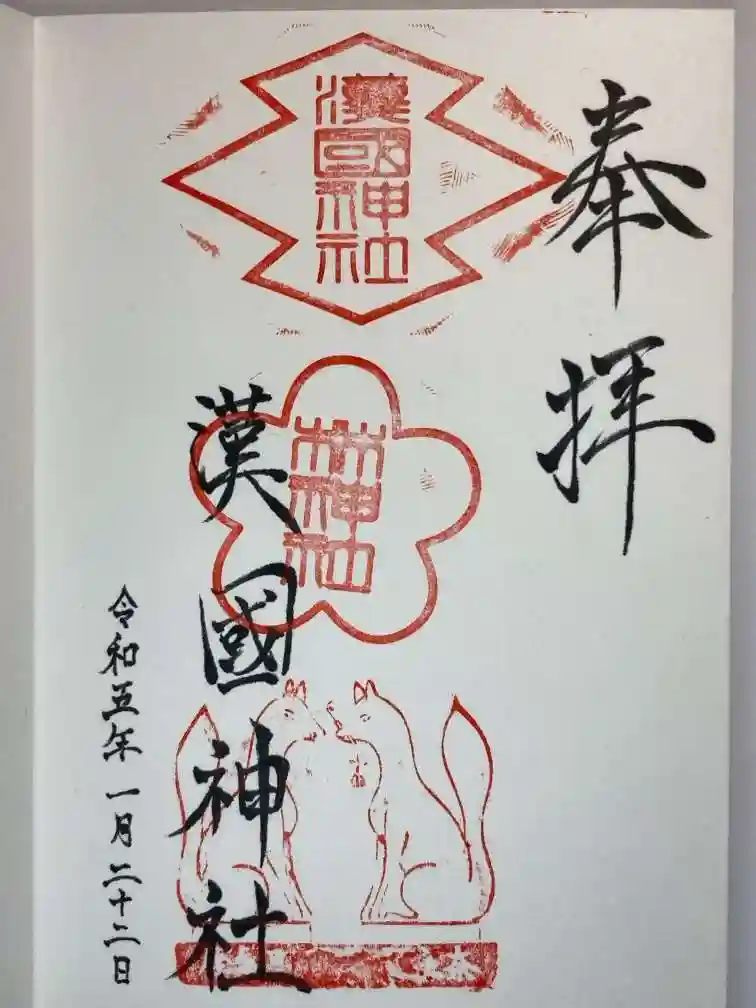 奉拝
漢國神社
令和五年一月二十二日
漢國神社
林神社